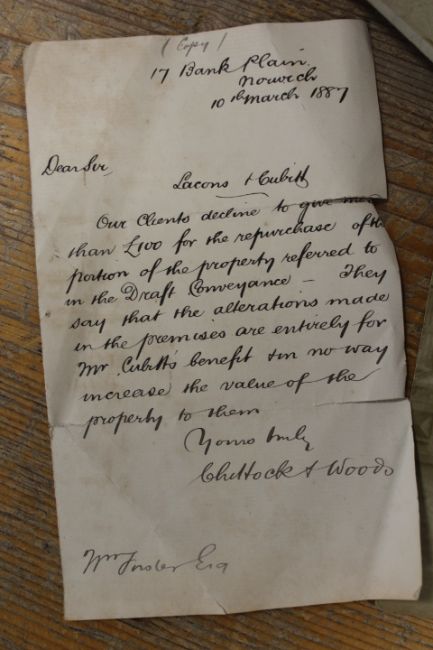 (Copy)
17 Bank Plain
Norwich
10th March 1887
Dear Sir,
Lacons & Cubitt
Our Clients decline to give more
than £100 for the repurchase of the
portion of the property referred to
in the Draft Conveyance — They
say that the alterations made
in the premises are entirely for
Mr. Cubitt's benefit & in no way
increase the value of the
property to them
Yours truly
Chittock & Woods
Wm Forster Esq